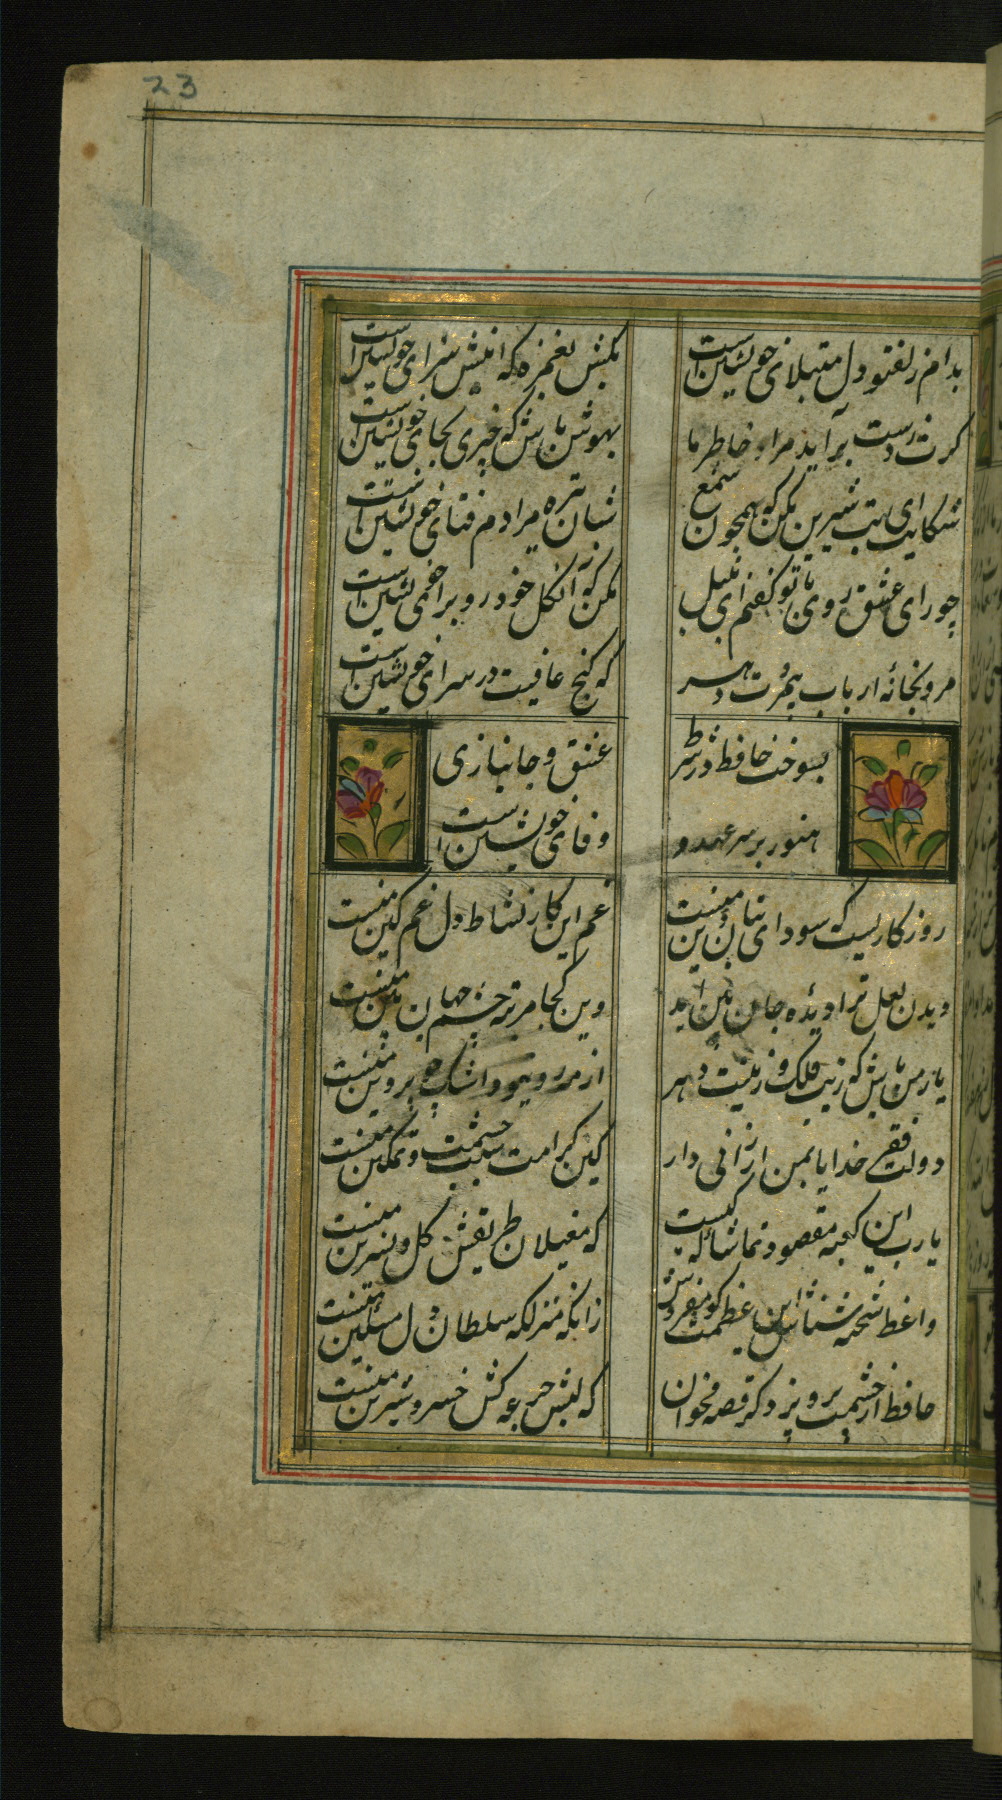 23
بدام زلف تو دل مبتلای خویشتن است
بکش بغمزه که اینش سزای خویشتن است
گرت ز دست برآید مراد خاطر ما
بهوش باش که خیری بجای خویشتن است
شکایت ای بت شیرین مکن که همچون شمع
شبان تیره مرادم فنای خویشتن است
چو رای عشق زدی با تو گفتم ای بلبل
مکن که آن گل خودرو برای خویشتن است
مرو بخانه ارباب بیمروت دهر
که کنج عافیت در سرای خویشتن است
بسوخت حافظ و در شرط
عشق و جانبازی
هنوز بر سر عهد و
وفای خویشتن است
روزگاریست که سودای بتان دین منست
غم این کار نشاط دل غمگین منست
دیدن لعل ترا دیده جان بین باید
وین کجا مرتبه چشم جهان بین منست
یار من باش که زیب فلک و زینت دهر
از مه روی تو و اشک چو پروین منست
دولت فقر خدایا بمن ارزانی دار
کین کرامت سبب حشمت و تمکین منست
یارب این کعبه مقصود تماشاگه کیست
که مغیلان طریقش گل و نسرین منست
واعظ شحنه شناس این عظمت گو مفروش
زانکه منزلگه سلطان دل مسکین منست
حافظ از حشمت پرویز دگر قصه مخوان
که لبش جرعه کش خسرو شیرین منست